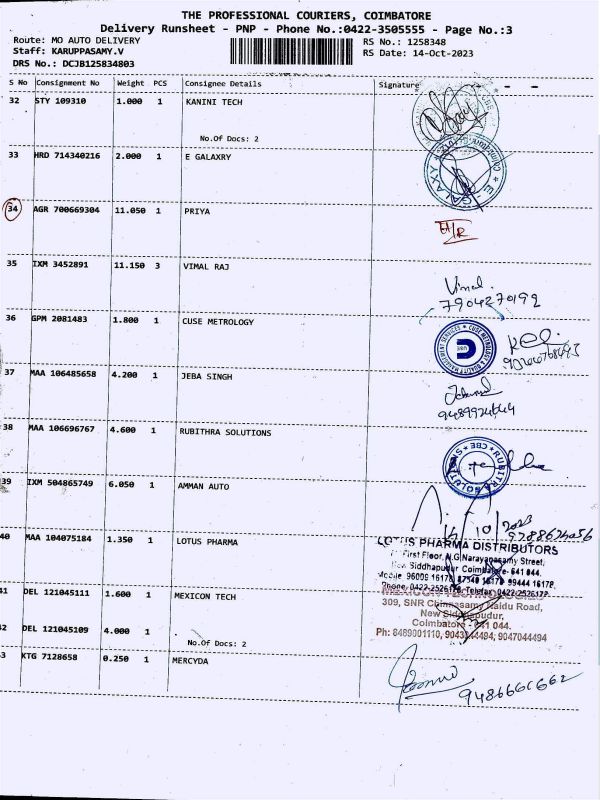 THE PROFESSIONAL COURIERS, COIMBATORE
Delivery Runsheet - PNP - Phone No.:0422-3505555 - Page No.:3
Route: MO AUTO DELIVERY
Staff: KARUPPASAMY.V
DRS No.: DCJB125834803
RS No.: 1258348
RS Date: 14-Oct-2023
S No Consignment No Weight PCS Consignee Details Signature
32 STY 109310 1.000 1 KANINI TECH
No.Of Docs: 2
33 HRD 714340216 2.000 1 E GALAXRY
34 AGR 700669304 11.050 1 PRIYA
35 IXM 3452891 11.150 3 VIMAL RAJ
Vimal
7904270192
36 GPM 2081483 1.800 1 CUSE METROLOGY
37 MAA 106485658 4.200 1 JEBA SINGH
38 MAA 106696767 4.600 1 RUBITHRA SOLUTIONS
39 IXM 504865749 6.050 1 AMMAN AUTO
40 MAA 104075184 1.350 1 LOTUS PHARMA
LOTUS PHARMA DISTRIBUTORS
First Floor, N.G Narayanasamy Street,
New Siddhapudur Coimbatore- 641 044.
Mobile 96009 16178, 87540 16178 99444 16178,
Phone 0422-2526178, Telefax 0422-2526177
41 DEL 121045111 1.600 1 MEXICON TECH
MEXICON TECHNOLOGIES
309, SNR Chinnasamy Naidu Road,
New Siddhapudur,
Coimbatore - 641 044.
42 DEL 121045109 4.000 1
Ph: 8489001110, 9043444494, 9047044494
No.Of Docs: 2
43 KTG 7128658 0.250 1 MERCYDA
9486661662